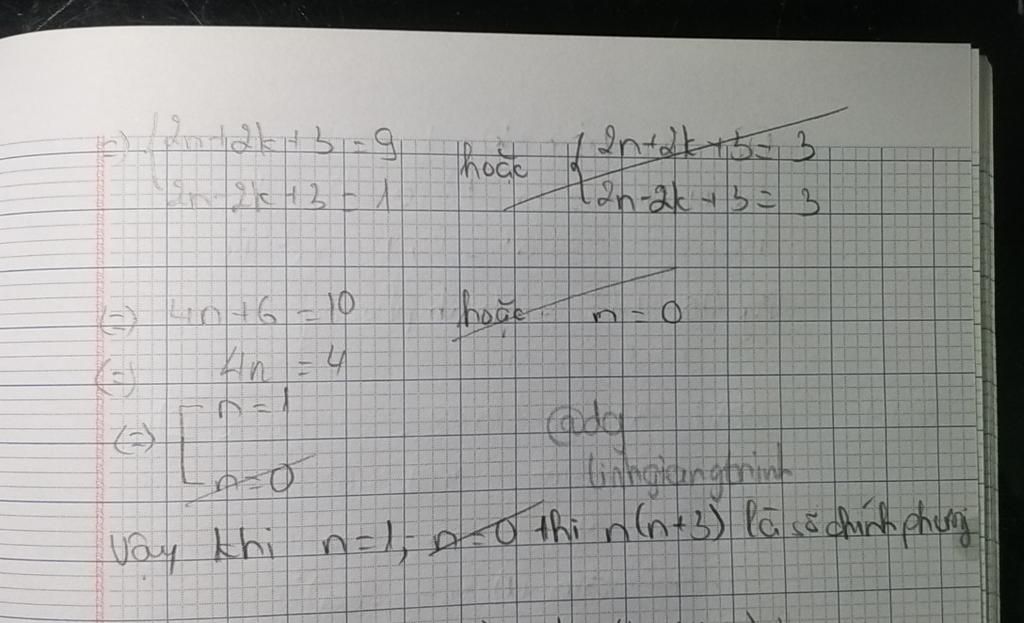 =) { 2n + 2k + 3 = 9 hoặc { 2n + 2k + 3 = 3
2n - 2k + 3 = 1 2n - 2k + 3 = 3
(=) 4n + 6 = 10 hoặc n = 0
(=) 4n = 4
(=) [ n = 1
n = 0
@dg
linhgiangtrinh
Vậy khi n = 1, n = 0 thì n(n+3) là số chính phương